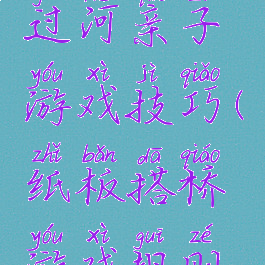 过河亲子
yóu xì jì qiǎo
游戏技巧(
zhǐ bǎn dā qiáo
纸板搭桥
yóu xì guī zé
游戏规则